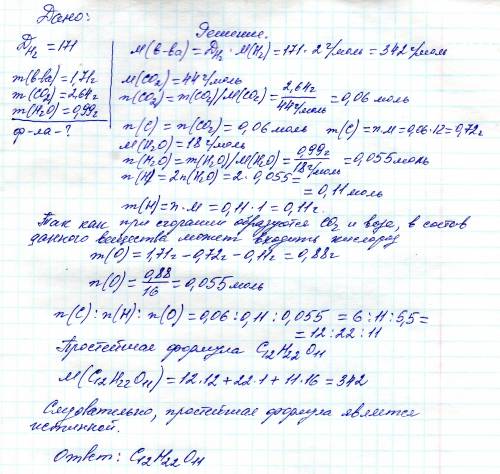 Дано:
D_H₂ = 171
m(в-ва) = 1,71г
m(CO₂) = 2,64г
m(H₂O) = 0,99г
ф-ла - ?
Решение.
M(в-ва) = D_H₂ · M(H₂) = 171 · 2 г/моль = 342 г/моль
M(CO₂) = 44 г/моль
n(CO₂) = m(CO₂)/M(CO₂) = 2,64г / 44 г/моль = 0,06 моль
n(C) = n(CO₂) = 0,06 моль m(C) = n·M = 0,06·12 = 0,72г
M(H₂O) = 18 г/моль
n(H₂O) = m(H₂O)/M(H₂O) = 0,99г / 18 г/моль = 0,055 моль
n(H) = 2n(H₂O) = 2 · 0,055 =
= 0,11 моль
m(H) = n·M = 0,11 · 1 = 0,11г.
Так как при сгорании образуются CO₂ и вода, в состав
данного вещества может входить кислород
m(O) = 1,71г - 0,72г - 0,11г = 0,88г
n(O) = 0,88 / 16 = 0,055 моль
n(C) : n(H) : n(O) = 0,06 : 0,11 : 0,055 = 6 : 11 : 5,5 =
= 12 : 22 : 11
Простейшая формула C₁₂H₂₂O₁₁
M(C₁₂H₂₂O₁₁) = 12·12 + 22·1 + 11·16 = 342
Следовательно, простейшая формула является
истинной.
Ответ: C₁₂H₂₂O₁₁